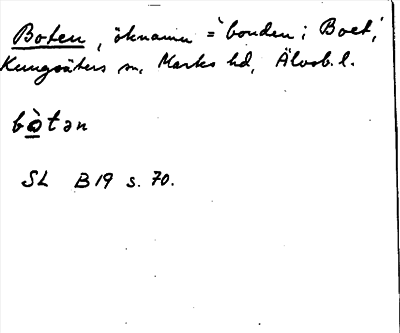 Boten, öknamn = 'bonden i Boet,'
Kungsäters sn, Marks hd, Älvsb. l.
bò̲tən
SL B19 s. 70.